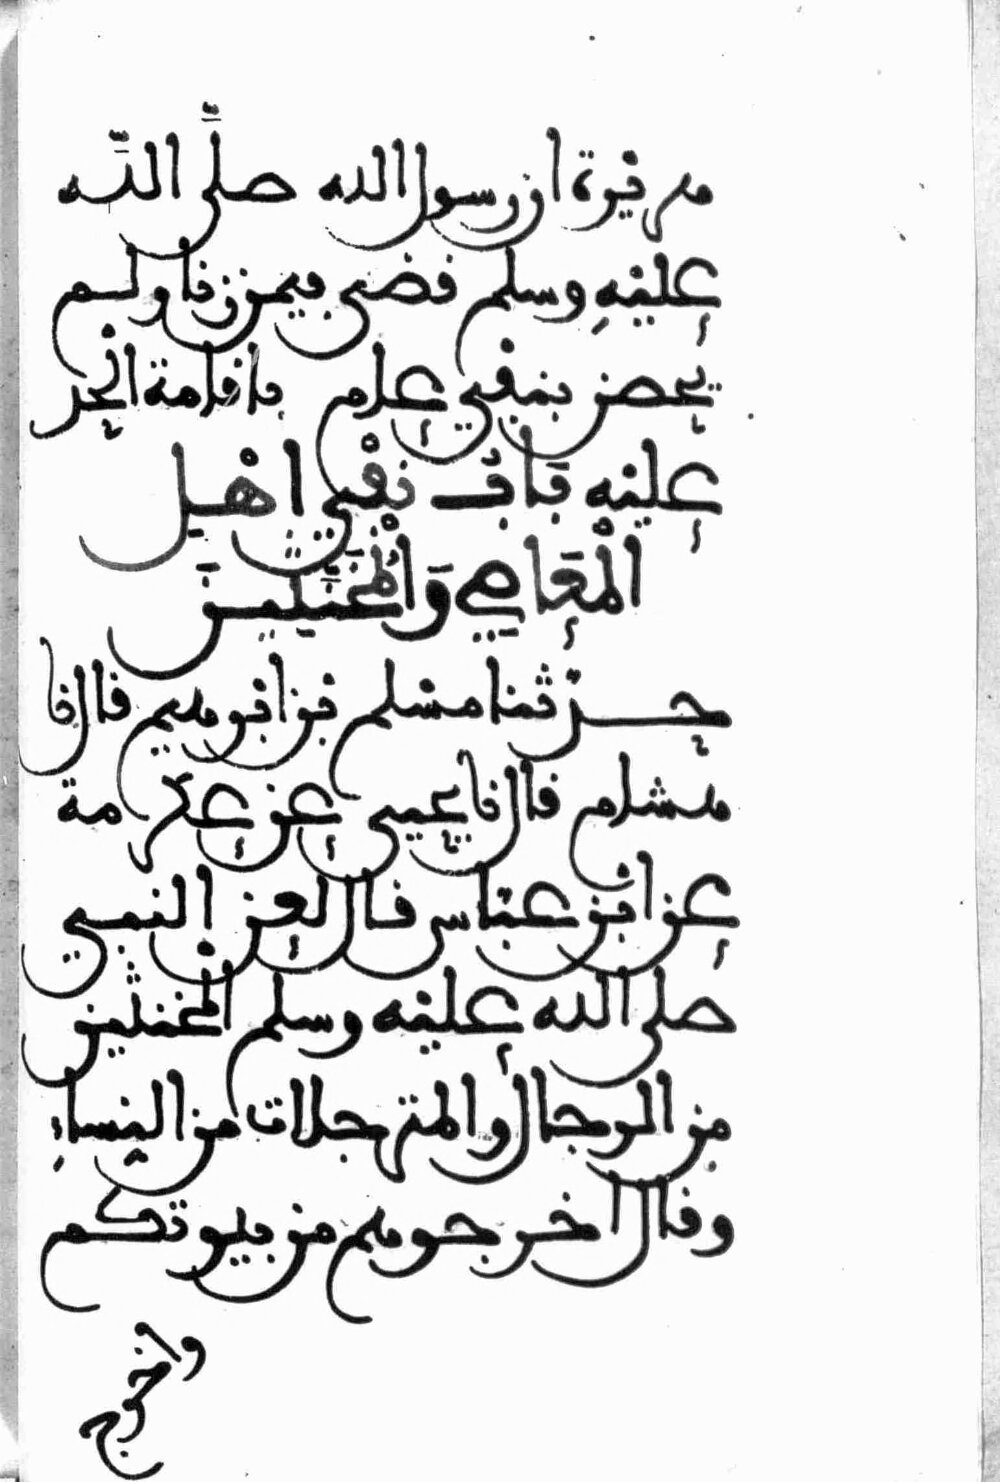 هريرة ان رسول الله صلى الله
عليه وسلم قضى فيمن زنا ولم
يحصن بنفي عام باقامة الحد
عليه باب نفي اهل
المعاصي والمخنثين
حدثنا مسلم بن ابرهيم قال نا
هشام قال نا يحيى عن عكرمة
عن ابن عباس قال لعن النبي
صلى الله عليه وسلم المخنثين
من الرجال والمترجلات من النساء
وقال اخرجوهم من بيوتكم
واخرج